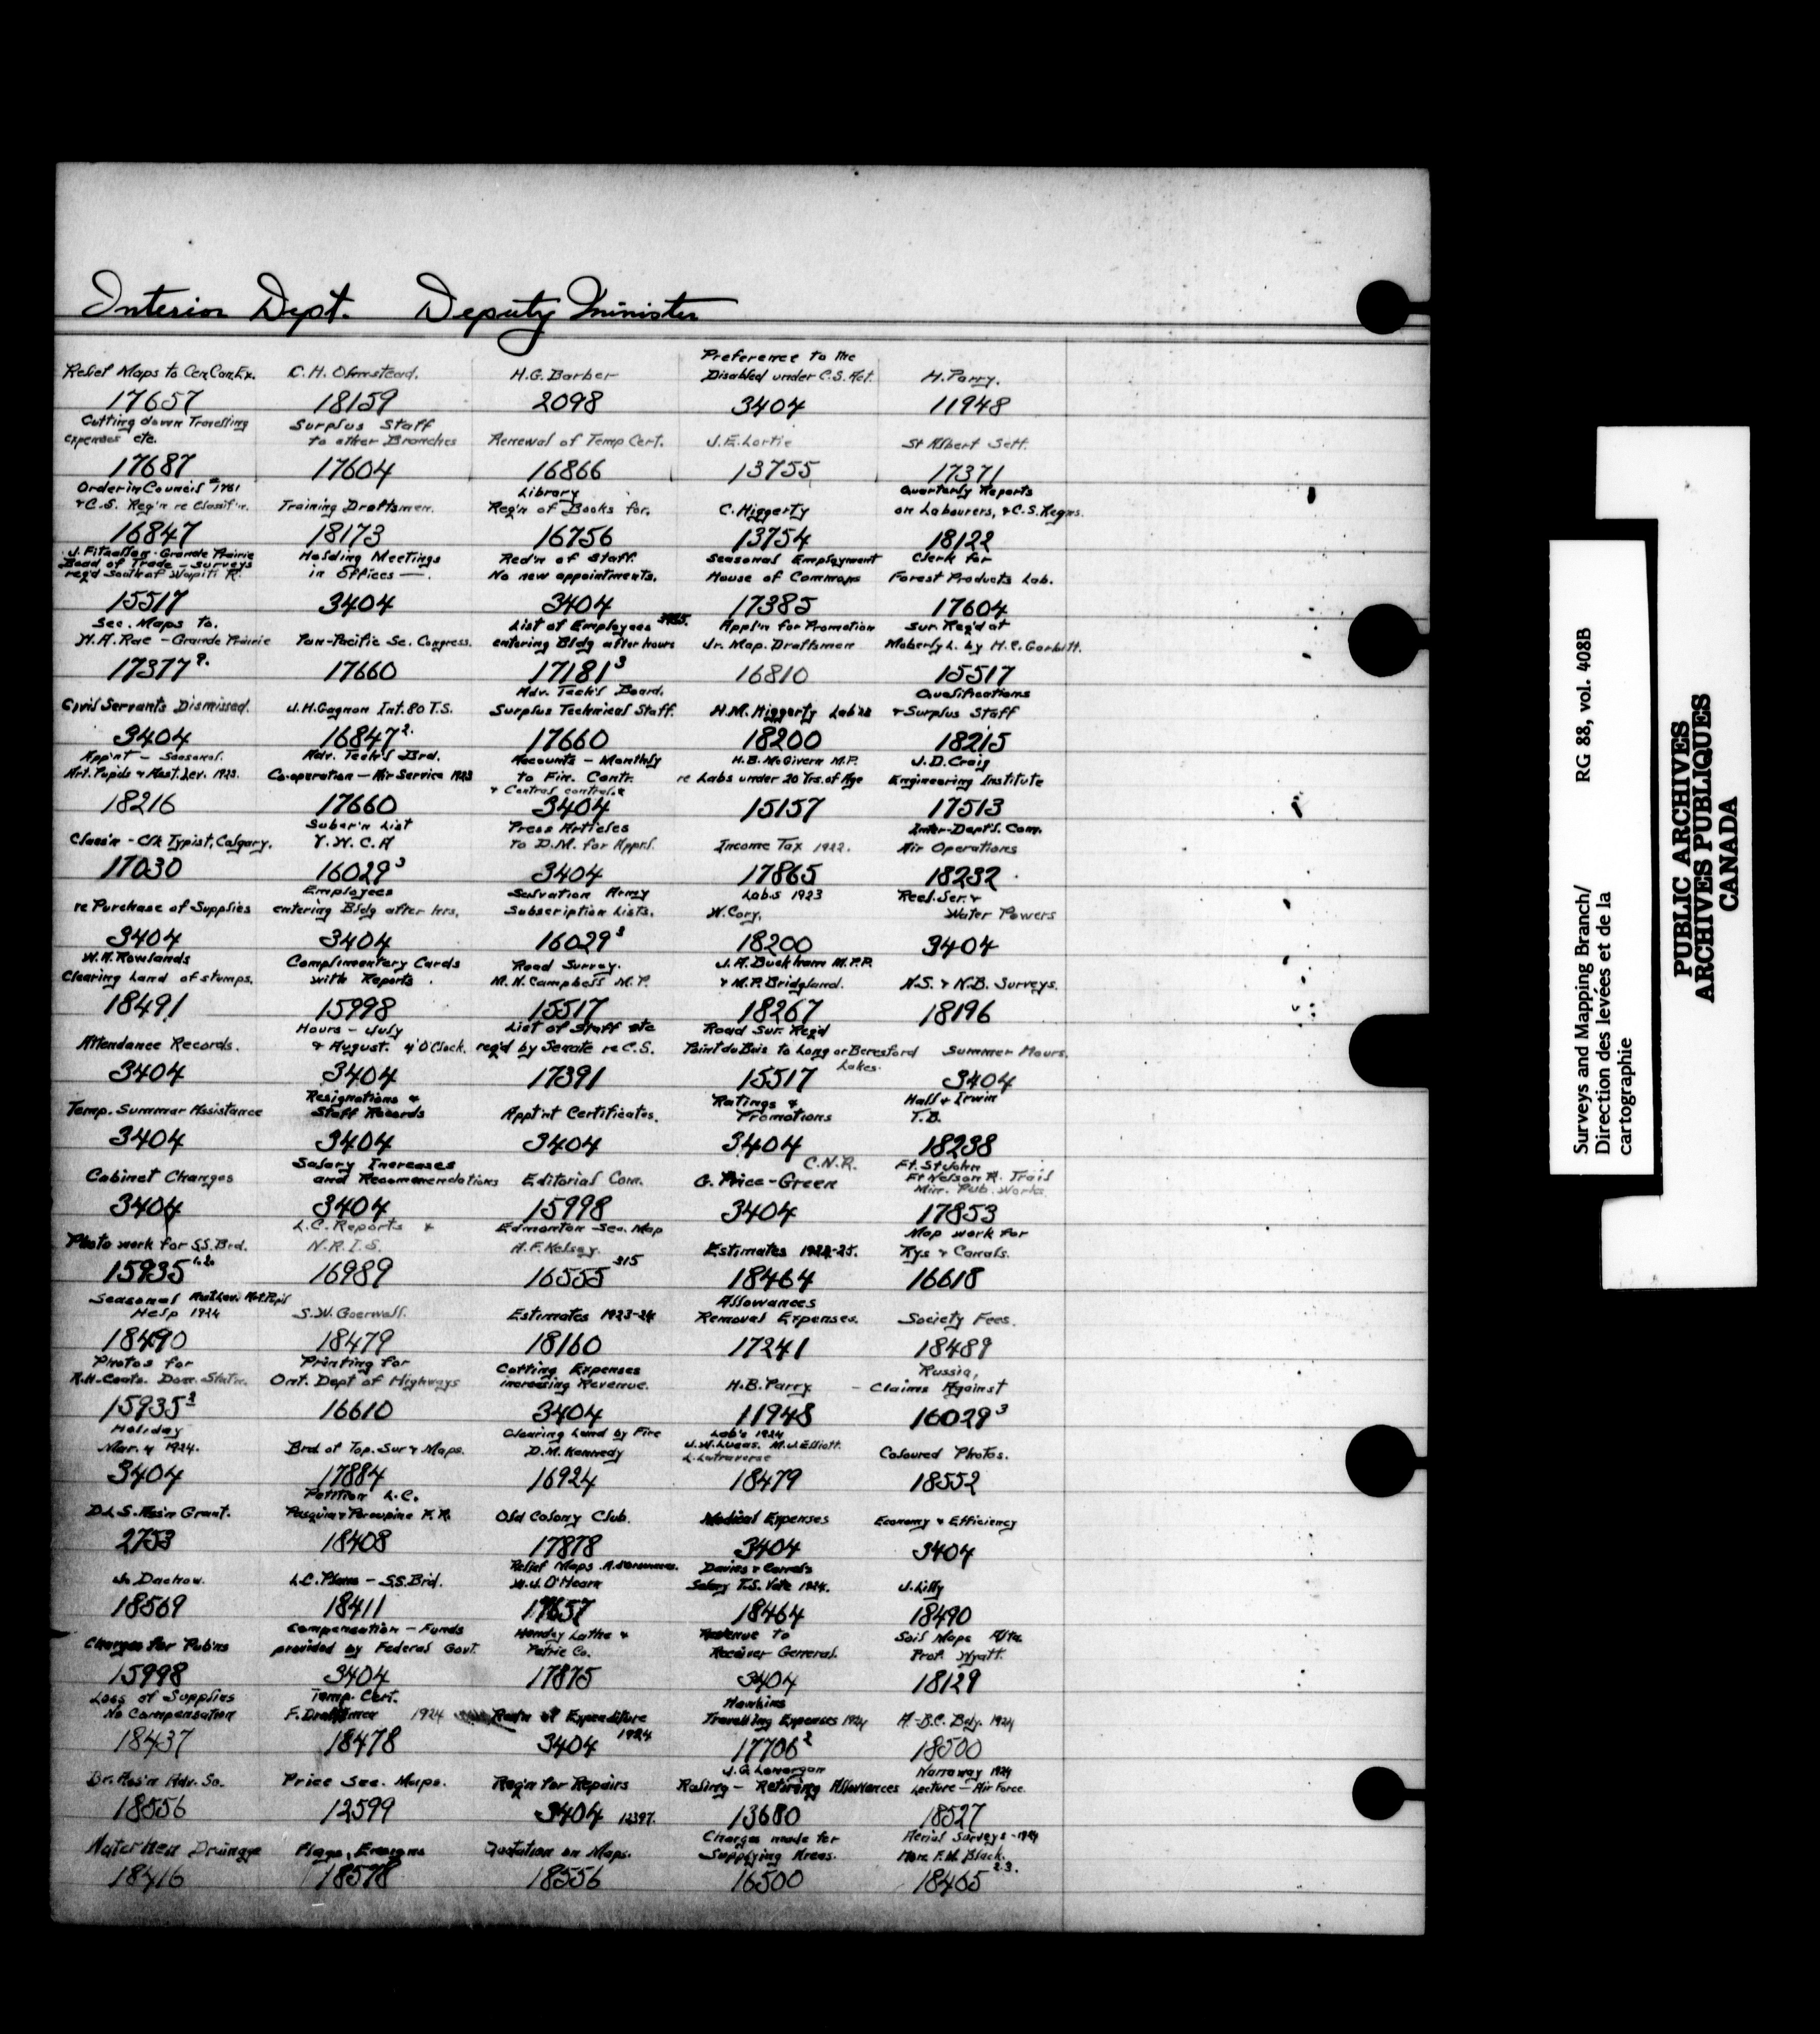 Interior Dept. Deputy Minister
Relief Maps to Cen. Can. Ex. C. H. Olmstead. H.G. Barber Preference to the Disabled under C.S. Act. H. Parry.
17657 18159 2098 3404 11948
Cutting down Travelling expenses etc. Surplus Staff to other Branches Renewal of Temp Cert. J.E. Lortie St Albert Sett.
17687 17604 16866 13755 17371
Order in Council #1781 & C.S. Reg'n re Classif'n. Training Draftsmen. Library Req'n of Books for. C. Higgerty Quarterly Reports on Labourers, & C.S. Regns.
16847 18173 16756 13754 18122
J. Grande Prairie Board of Trade - surveys req'd South of Wapiti R. Holding Meetings in Offices —. Red'n of Staff. No new appointments. Seasonal Employment House of Commons Clerk for Forest Products Lab.
15517 3404 3404 17385 17604
Sec. Maps to. W.A. Rae - Grande Prairie Pan-Pacific Sc. Congress. List of Employees entering Bldg after hours Appl'n for Promotion Jr. Map. Draftsmen Sur. Req'd at Moberly L. by H.P.
17377 9. 17660 17181 3 16810 15517
Civil Servants Dismissed. J.H. Gagnon Int. 80 T.S. Adv. Tech'l Board. Surplus Technical Staff. H.M. Higgerty Lab'rs Qualifications & Surplus Staff
3404 16847 2. 17660 18200 18215
App'nt - Seasonal. Art. Pupils & Asst. Lev. 1923. Adv. Tech'l Brd. Co-operation - Air Service 1923 Accounts - Monthly to Fin. Contr. & Central control H.B. McGivern M.P. re Labs under 20 Yrs. of Age J.D. Craig Engineering Institute
18216 17660 3404 15157 17513
Class'n - Clk Typist, Calgary. Subsr'n List Y.W.C.A Press Articles to D.M. for Appr'l. Income Tax 1922. Inter-Dept'l. Com. Air Operations
17030 16029 3 3404 17865 18232
re Purchase of Supplies Employees entering Bldg after hrs. Salvation Army Subscription Lists. Labs 1923 W. Cory. Recl. Ser. & Water Powers
3404 3404 16029 3 18200 3404
W.A. Rowlands Clearing Land of stumps. Complimentary Cards with Reports. Road Survey. M.N. Campbell M.P. J.A. Buckham M.P.P. & M.P. Bridgland. N.S. & N.B. Surveys.
18491 15998 15517 18267 18196
Attendance Records. Hours - July & August. 4 O'Clock. List of Staff etc req'd by Senate re C.S. Road Sur. Req'd Point du Bois to Long or Beresford Lakes. Summer Hours.
3404 3404 17391 15517 3404
Temp. Summer Assistance Resignations & Staff Records App't'nt Certificates. Ratings & Promotions Hall & Irwin T.B.
3404 3404 3404 3404 18238
Cabinet Changes Salary Increases and Recommendations Editorial Com. C.N.R. G. Price-Green Ft. St John Ft Nelson R. Trail Min. Pub. Works
3404 3404 15998 3404 17853
Photo work for S.S. Brd. L.C. Reports & N.R.I.S. Edmonton Sec. Map H.F. Kelsey. Estimates 1924-25. Map work for Rys & Canals.
15935 1.2. 16989 16555 315 18464 16618
Seasonal Help 1924 S.W. Estimates 1923-24 Allowances Removal Expenses. Society Fees.
18490 18479 18160 17241 18489
Photos for R.H. Coats. Dom. Statn. Printing for Ont. Dept of Highways Cutting Expenses increasing Revenue. H.B. Parry Russia, - Claims Against
15935 3 16610 3404 11948 16029 3
Holiday Mar. 4 1924. Brd of Top. Sur & Maps. Clearing Land by Fire D.M. Kennedy Lab's 1924 J.W. Lucas. M.J. Elliott. L. Latraverse Coloured Photos.
3404 17884 16924 18479 18552
D.L.S. Ass'n Grant. Petition L.C. Pasquia & Porcupine F.R. Old Colony Club. Medical Expenses Economy & Efficiency
2753 18408 17878 3404 3404
J. L.C. Plans - S.S. Brd. Relief Maps W.J. O'Hearn Davies & Salary T.S. Vote 1924. J. Lilly
18569 18411 17657 18464 18490
Charges for Pub'ns Compensation - Funds provided by Federal Govt. Hendey Lathe & Petrie Co. Revenue to Receiver General. Soil Maps Alta. Prof. Wyatt.
15998 3404 17875 3404 18129
Loss of Supplies No Compensation Temp. Cert. F. Draftsmen 1924 Red'n of Expenditure 1924 Hawkins Travelling Expenses 1924 A.-B.C. Bdy. 1924
18437 18478 3404 17706 2 18500
Br. Ass'n Adv. Sc. Price Sec. Maps. Req'n for Repairs J.G. Lonergan Ruling - Retiring Allowances Narraway 1924 Lecture - Air Force.
18556 12599 3404 12397. 13680 18527
Waterhen Drainage Flags, Ensigns Quotation on Maps. Charges made for Supplying Areas. Aerial Surveys - 1924 Hon. F.M. Black.
18416 18578 18556 16500 18465 2.3.
Surveys and Mapping Branch/ RG 88, vol. 408B
Direction des levées et de la
cartographie
PUBLIC ARCHIVES
ARCHIVES PUBLIQUES
CANADA